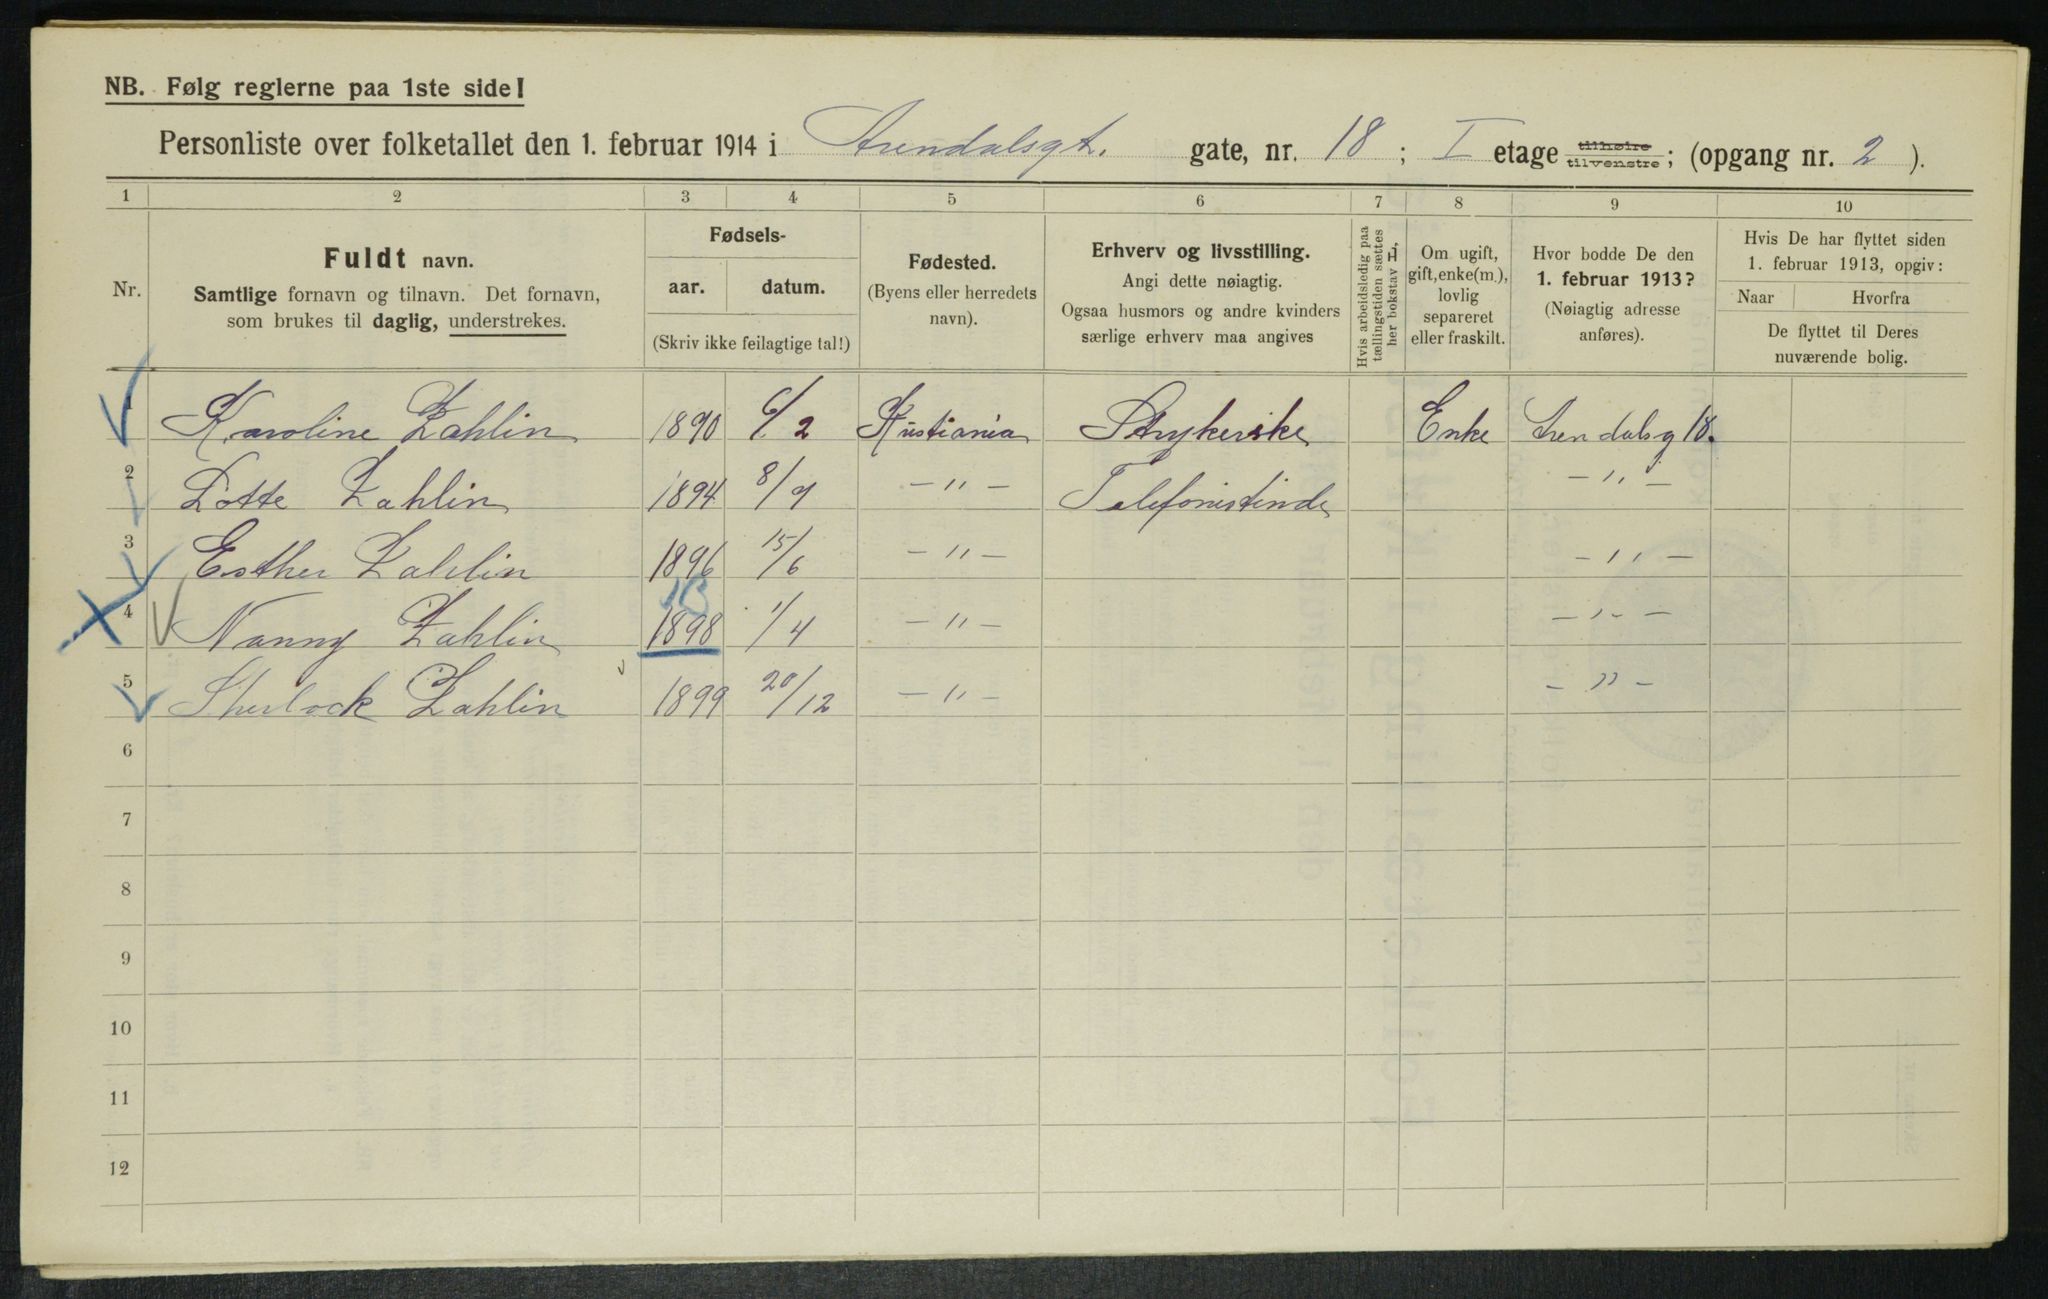 NB. Følg reglerne paa 1ste side!
Personliste over folketallet den 1. februar 1914 i Arendalsgt. gate, nr. 18 ; I etage tilhøire tilvenstre ; (opgang nr. 2 ).
1 2 3 4 5 6 7 8 9 10
Nr.
Fuldt navn.
Samtlige fornavn og tilnavn. Det fornavn,
som brukes til daglig, understrekes.
Fødsels-
aar. datum.
(Skriv ikke feilagtige tal!)
Fødested.
(Byens eller herredets
navn).
Erhverv og livsstilling.
Angi dette nøiagtig.
Ogsaa husmors og andre kvinders
særlige erhverv maa angives
Hvis arbeidsledig paa
tællingstiden sættes
her bokstav L,
Om ugift,
gift, enke(m.),
lovlig
separeret
eller fraskilt.
Hvor bodde De den
1. februar 1913?
(Nøiagtig adresse
anføres).
Hvis De har flyttet siden
1. februar 1913, opgiv:
Naar Hvorfra
De flyttet til Deres
nuværende bolig.
1 Karoline Zahlin 1890 6/2 Kristiania Strykerske Enke Arendalsg 18.
2 Lotte Zahlin 1894 8/9 — " — Telefonistinde — " —
3 Esther Zahlin 1896 15/6 — " — — " —
4 Nanny Zahlin 1898 1/4 — " — — " —
5 Sherlock Zahlin 1899 20/12 — " — — " —
6
7
8
9
10
11
12